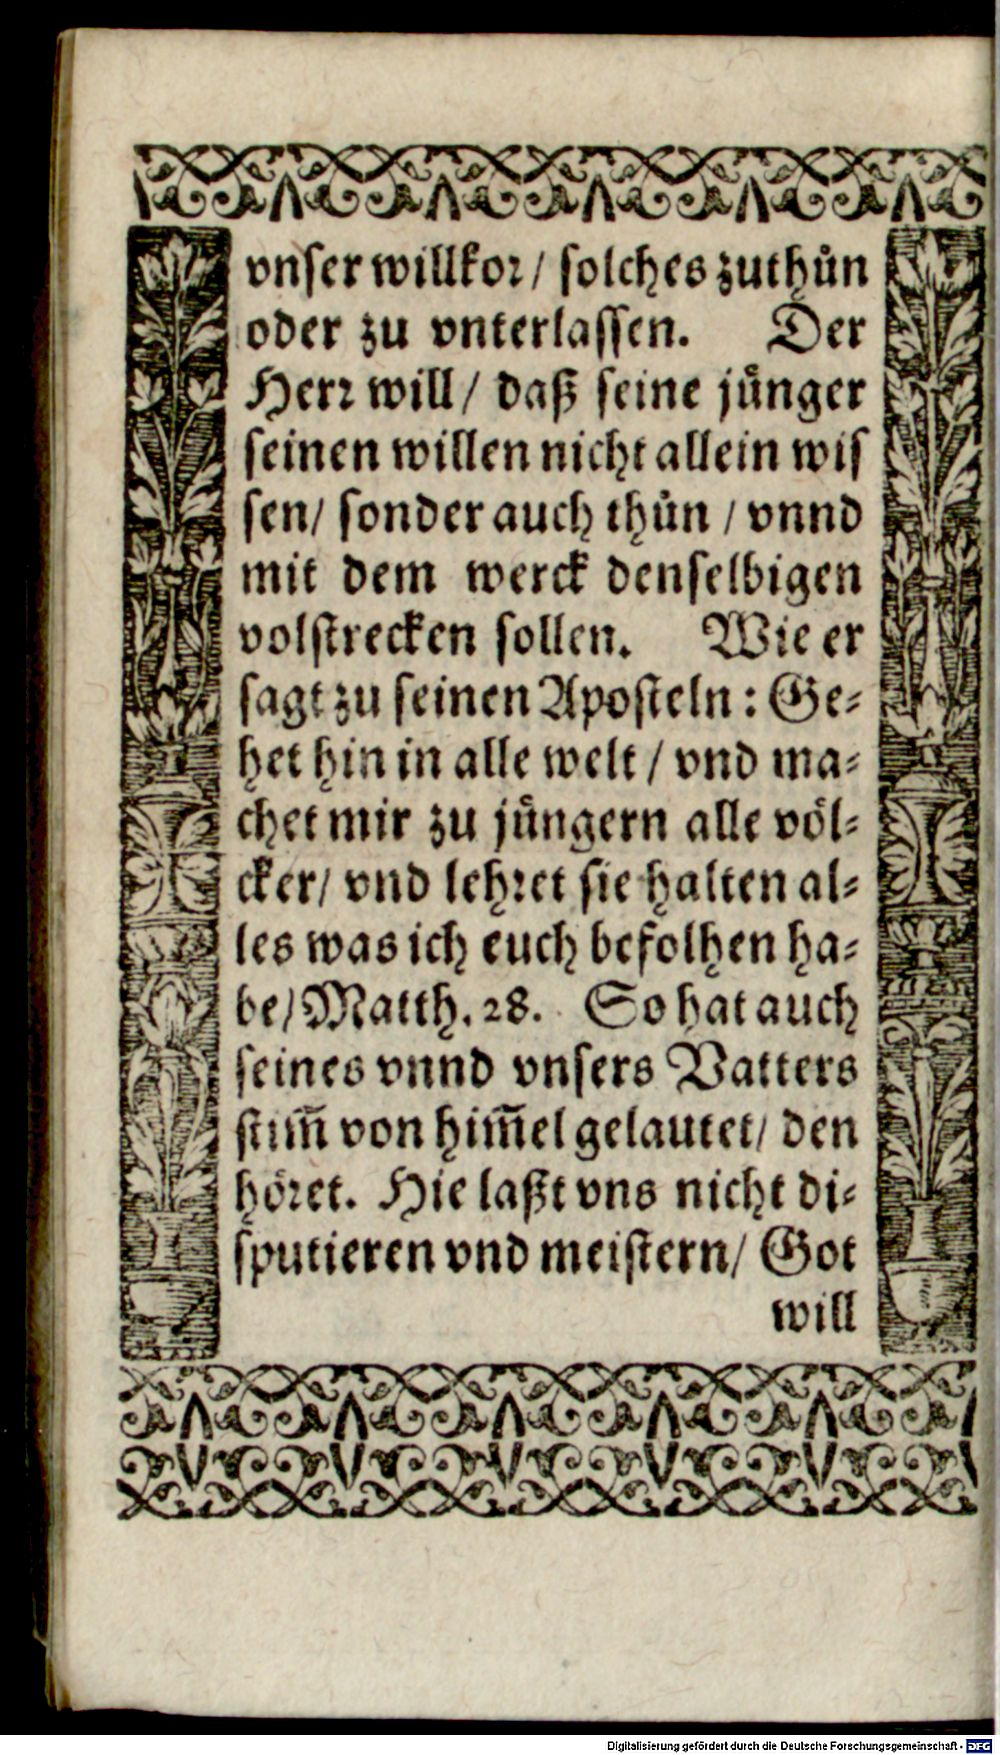 vnser willkor / solches zuthůn
oder zu vnterlassen. Der
Herr will / daß seine jünger
seinen willen nicht allein wis
sen / sonder auch thůn / vnnd
mit dem werck denselbigen
volstrecken sollen. Wie er
sagt zu seinen Aposteln: Ge-
het hin in alle welt / vnd ma-
chet mir zu jüngern alle völ-
cker / vnd lehret sie halten al-
les was ich euch befolhen ha-
be / Matth. 28. So hat auch
seines vnnd vnsers Vatters
stim̃ von him̃el gelautet / den
höret. Hie laßt vns nicht di-
sputieren vnd meistern / Got
will
Digitalisierung gefördert durch die Deutsche Forschungsgemeinschaft - DFG